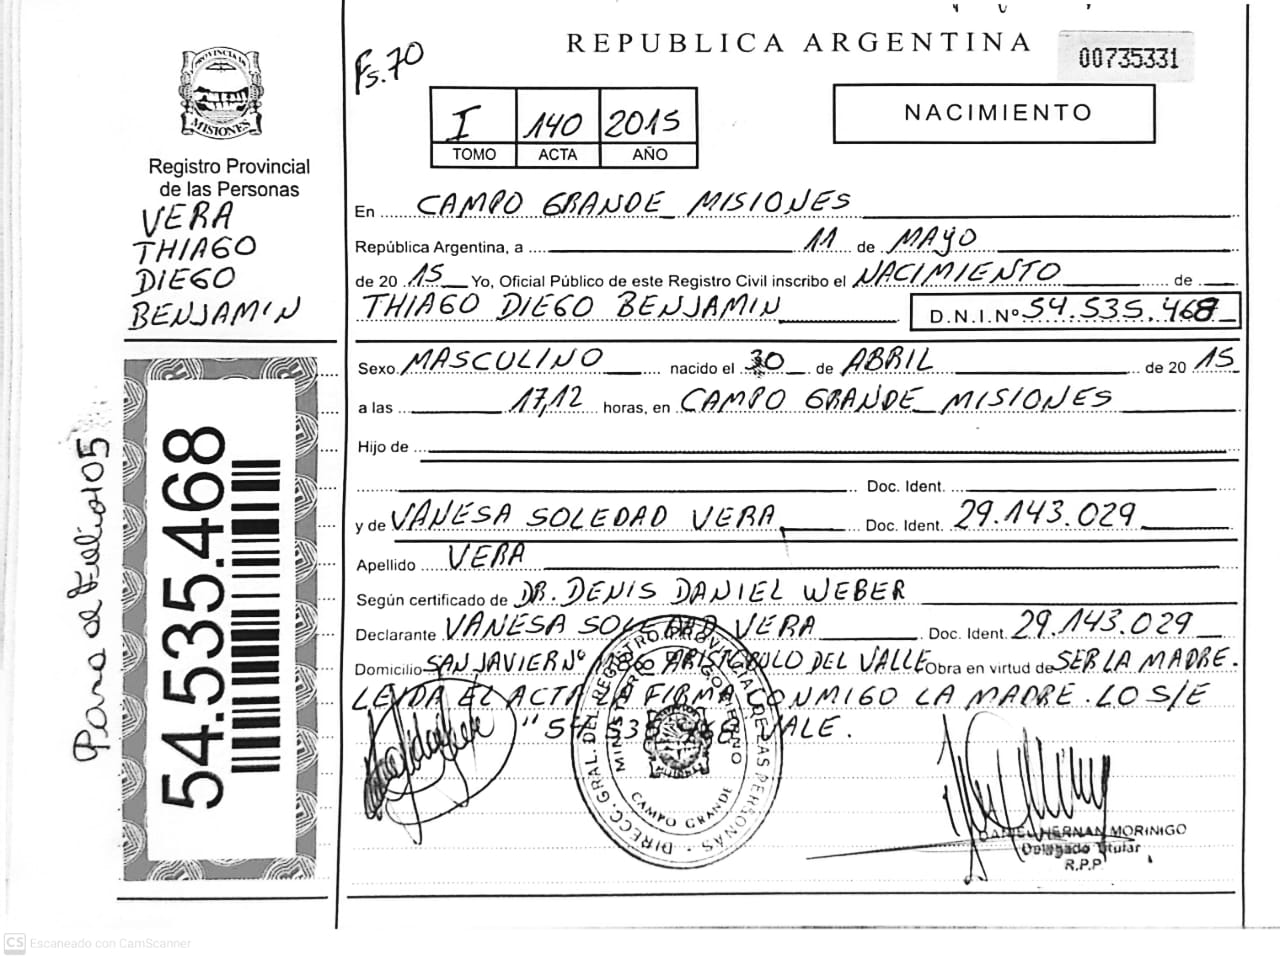 REPUBLICA ARGENTINA
00735331
Fs.70
PROVINCIA DE MISIONES
Registro Provincial
de las Personas
VERA
THIAGO
DIEGO
BENJAMIN
I 140 2015
TOMO ACTA AÑO
NACIMIENTO
En CAMPO GRANDE MISIONES
República Argentina, a 11 de MAYO
de 20 15 Yo, Oficial Público de este Registro Civil inscribo el NACIMIENTO de
THIAGO DIEGO BENJAMIN D.N.I.Nº 54.535.468
Sexo MASCULINO nacido el 30 de ABRIL de 20 15
a las 17,12 horas, en CAMPO GRANDE MISIONES
Hijo de
Doc. Ident.
y de VANESA SOLEDAD VERA Doc. Ident. 29.143.029
Apellido VERA
Según certificado de DR. DENIS DANIEL WEBER
Declarante VANESA SOLEDAD VERA Doc. Ident. 29.143.029
Domicilio SAN JAVIER Nº ARISTOBULO DEL VALLE Obra en virtud de SER LA MADRE.
LEIDA EL ACTA LA FIRMA CONMIGO LA MADRE. LO S/E
"54.535.468" VALE.
DIRECC. GRAL. DEL REGISTRO PROVINCIAL DE LAS PERSONAS
MINISTERIO GOBIERNO
CAMPO GRANDE
DANIEL HERNAN MORINIGO
Delegado Titular
R.P.P.
54.535.468
CS Escaneado con CamScanner